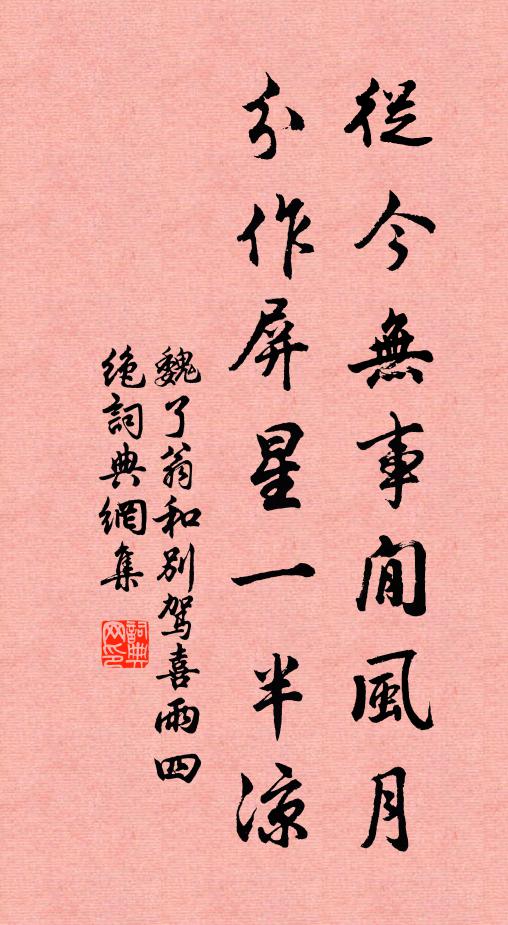 從今無事閒風月
分作屏星一半涼
魏了翁和別駕喜雨四
絶詞典網集
詞典网印